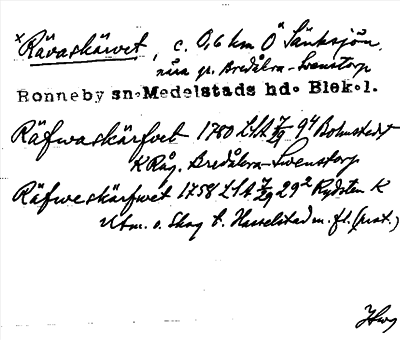 × Rävaskärvet, c. 0,6 km Ö Sänksjön,
nära gr. Bredåkra-Svenstorp
Ronneby sn. Medelstads hd. Blek.l.
Räfwaskärfvet 1780 LSA 7/29 9⁴ Bohnstedt
K Råg. Bredåkra-Svenstorp
Räfweskärfwet 1758 LSA 7/29 29² Rydsten K
Utm. o. Skog t. Hasselstad m. fl. (            )